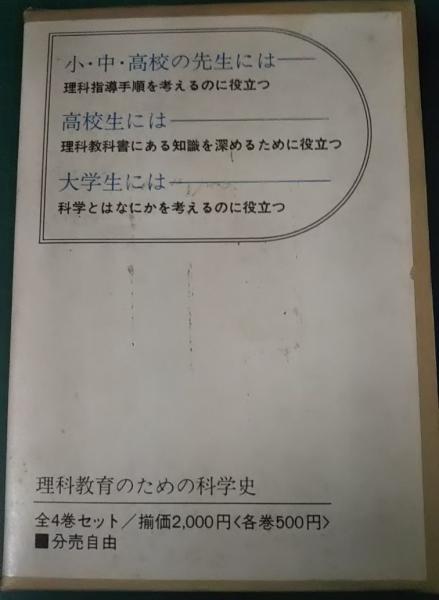 小・中・高校の先生には――
理科指導手順を考えるのに役立つ
高校生には――――
理科教科書にある知識を深めるために役立つ
大学生には――――
科学とはなにかを考えるのに役立つ
理科教育のための科学史
全4巻セット／揃価2,000円<各巻500円>
■分売自由